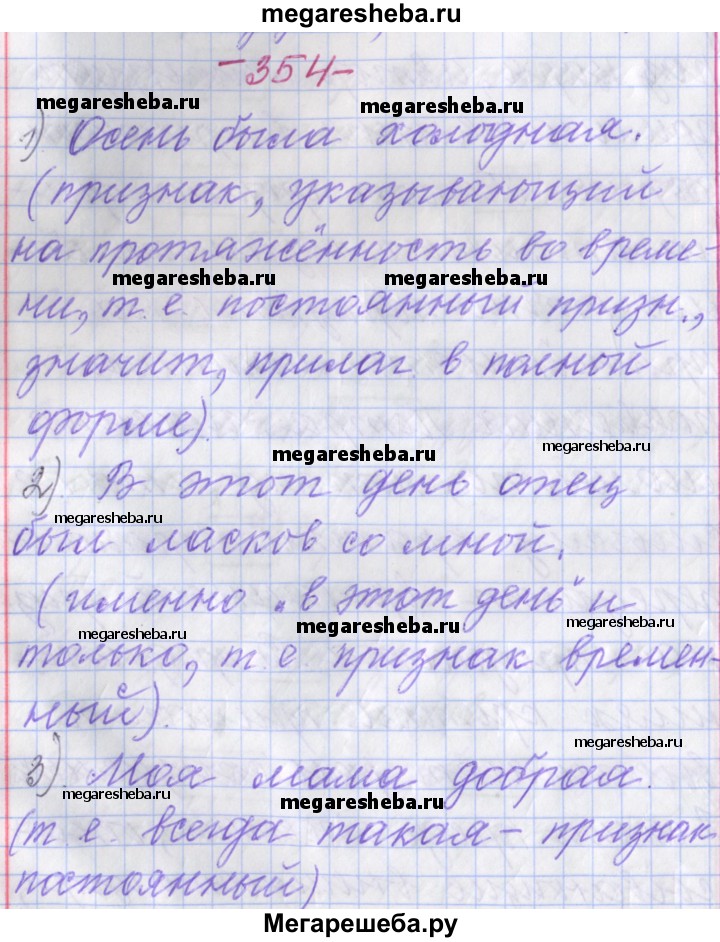 megaresheba.ru
-354-
megaresheba.ru megaresheba.ru
1) Осень была холодная.
(признак, указывающий
на протяжённость во време-
megaresheba.ru megaresheba.ru
ни, т. е. постоянный призн.,
значит, прилаг в полной
форме).
megaresheba.ru
megaresheba.ru
2) В этот день отец
megaresheba.ru
был ласков со мной.
(именно „в этот день" и
megaresheba.ru megaresheba.ru
только, т е признак времен-
ный).
megaresheba.ru
3) Моя мама добрая.
megaresheba.ru
megaresheba.ru
(т е. всегда такая – признак
постоянный)
Мегарешеба.ру